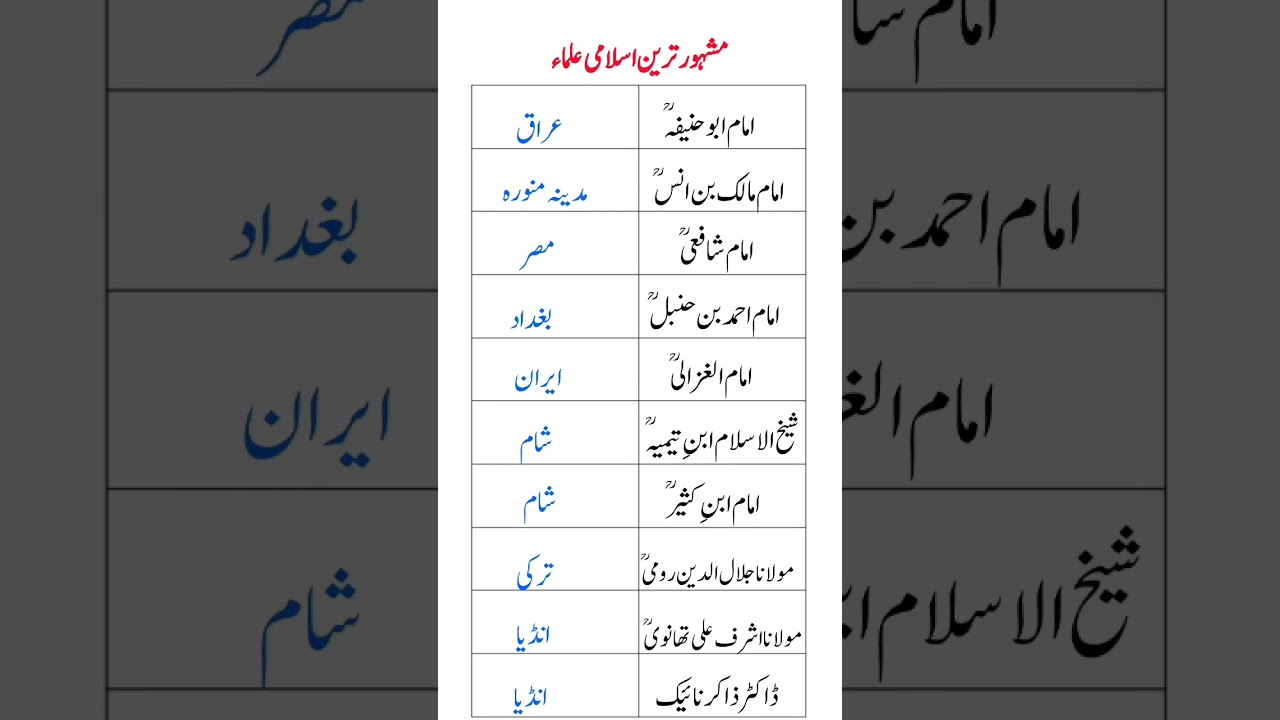 مشہور ترین اسلامی علماء
امام ابو حنیفہؒ عراق
امام مالک بن انسؒ مدینہ منورہ
امام شافعیؒ مصر
امام احمد بن حنبلؒ بغداد
امام الغزالیؒ ایران
شیخ الاسلام ابنِ تیمیہؒ شام
امام ابنِ کثیرؒ شام
مولانا جلال الدین رومیؒ ترکی
مولانا اشرف علی تھانویؒ انڈیا
ڈاکٹر ذاکر نائیک انڈیا